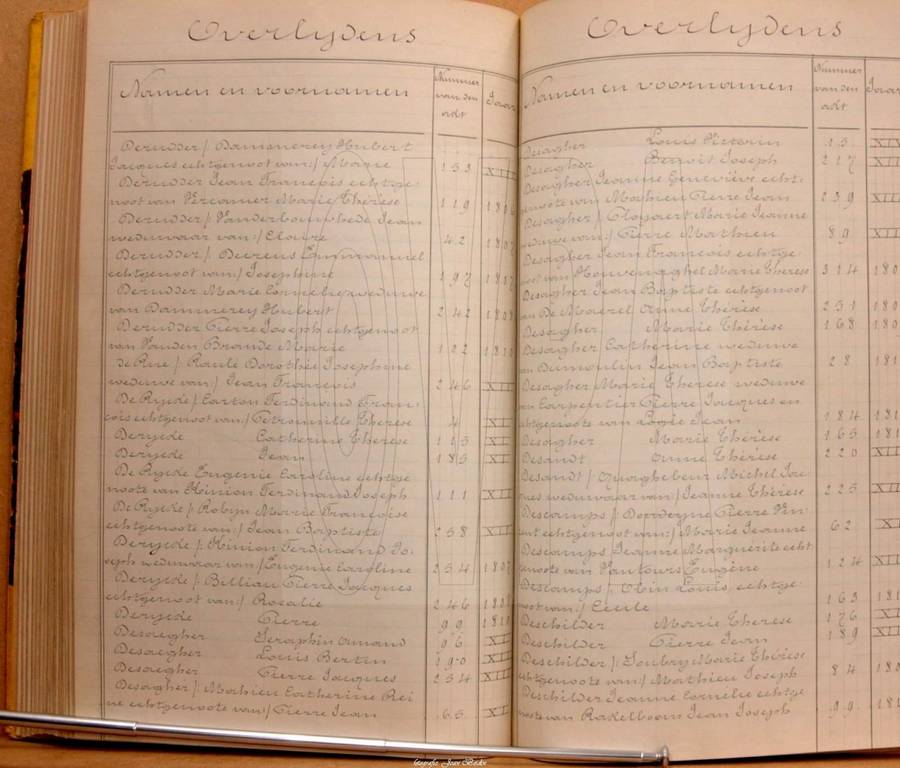 Overlydens
Namen en voornamen
Nummer van den act
Jaar
Derudder / Dammerey Hubert
Jacques echtgenoot van / Marie 153 XII
Derudder Jean François echtge-
noot van Vercamer Marie Thérèse 119 180
Derudder / Vanderbouwhede Jean
weduwaar van / Claire 42 1807
Derudder / Decrens Emmanuel
echtgenoot van / Josephine 197 1807
Derudder Marie Cornelie weduwe
van Dammerey Hubert 242 1808
Derudder Pierre Joseph echtgenoot
van Vanden Broande Marie 122 1810
de Rue / Raulé Dorothée Josephine
weduwe van / Jean François 246 XII
De Ryede / Carton Ferdinand Fran-
çois echtgenoot van / Petronille Thérèse 4 XI
Deryede Catherine Thérèse 113 XI
Deryede Jean 185 XII
De Ryede Eugenie Caroline echtge-
noote van Hinion Ferdinand Joseph 111 XII
De Ryede / Robyn Marie Françoise
echtgenoote van / Jean Baptiste 258 XII
Deryede / Hinion Ferdinand Jo-
seph weduwaar van / Eugénie Caroline 254 1807
Deryede / Billiau Pierre Jacques
echtgenoot van / Rosalie 246 180
Deryede Pierre 99 1810
Desaegher Seraphin Amand 96 XII
Desaegher Louis Bertin 190 XII
Desaegher Pierre Jacques 254 XII
Desagher / Mahieu Catherine Rei-
ne echtgenoote van / Pierre Jean 65 XI
Overlydens
Namen en voornamen
Nummer van den act
Jaar
Desagher Louis Victorin 15 XII
Desagher Benoit Joseph 217 XII
Desagher Jeanne Geneviève echt-
genoote van Mathieu Pierre Jean 239 XII
Desagher / Clopaert Marie Jeanne
weduwe van / Pierre Mathieu 89 XII
Desagher Jean François echtge-
noot van Houvenaghel Marie Thérèse 314 180
Desagher Jean Baptiste echtgenoot
van De Maerel Anne Thérèse 251 180
Desagher Marie Thérèse 168 180
Desagher Catherine weduwe
van Dumoulin Jean Baptiste 28 181
Desagher Marie Thérèse weduwe
van Carpentier Pierre Jacques en
echtgenoote van Logie Jean 184 181
Desagher Marie Thérèse 165 181
Desandt Anne Thérèse 220 XII
Desandt / Quaghebeur Michel Jac-
ques weduwaar van / Jeanne Thérèse 225 XII
Descamps / Dordeyne Pierre Vin-
cent echtgenoot van / Marie Jeanne 62 X
Descamps Jeanne Marguerite echt-
genoote van Vantours Eugène 124 XII
Descamps / Obin Louis echtge-
noot van / Cecile 163 181
Deschilder Marie Therese 176 XII
Deschilder Pierre Jean 189 XII
Deschilder / Soubry Marie Thérèse
echtgenoote van / Mathieu Joseph 84 180
Deschilder Jeanne Cornelie echtge-
noote van Rakelboom Jean Joseph 99 181